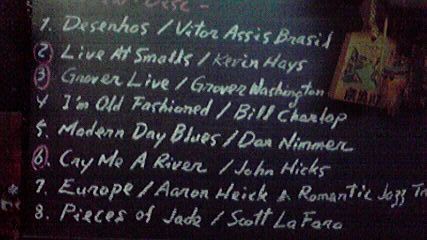 1. Desenhos / Vitor Assis Brasil
2. Live At Smalls / Kevin Hays
3. Grover Live / Grover Washington
4 I'm Old Fashioned / Bill Charlop
5. Modern Day Blues / Dan Nimmer
6. Cry Me A River / John Hicks
7. Europe / Aaron Heick & Romantic Jazz
8. Pieces of Jade / Scott LaFaro